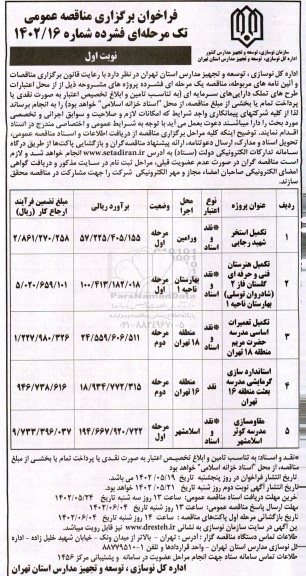 فراخوان برگزاری مناقصه عمومی
تک مرحله‌ای فشرده شماره ۱۴۰۲/۱۶
سازمان نوسازی، توسعه و تجهیز مدارس کشور
اداره کل نوسازی، توسعه و تجهیز مدارس استان تهران
نوبت اول
اداره کل نوسازی، توسعه و تجهیز مدارس استان تهران در نظر دارد با رعایت قانون برگزاری مناقصات
و آئین نامه های مربوطه، مناقصه یک مرحله ای فشرده پروژه های مشروحه ذیل از محل اعتبارات
طرح های تملک دارایی‌های سرمایه ای (به تناسب تامین و ابلاغ تخصیص اعتبار به صورت نقدی یا
پرداخت تمام یا بخشی از مبلغ مناقصه، از محل "اسناد خزانه اسلامی" خواهد بود) را به انجام برساند
لذا از کلیه شرکتهای پیمانکاری واجد شرایط که امکانات لازم و صلاحیت و سوابق اجرائی و تخصصی
مورد بحث را دارا میباشند دعوت بعمل می آید با توجه به شرایط عمومی و اختصاصی مندرج در اسناد
اقدام نمایند. توضیح اینکه کلیه مراحل برگزاری مناقصه از دریافت اطلاعات و اسناد مناقصه عمومی،
تحویل اسناد و مدارک، ارسال دعوتنامه، ارائه پیشنهاد مناقصه گران و بازگشایی پاکت‌ها از طریق درگاه
سامانه تدارکات الکترونیکی دولت (ستاد) به آدرس www.setadiran.ir انجام خواهد شد و لازم
است مناقصه گران در صورت عدم عضویت قبلی، مراحل ثبت نام در سایت مذکور و دریافت گواهی
امضای الکترونیکی صاحبان امضاء مجاز و مهر الکترونیکی شرکت را جهت مشارکت در مناقصه محقق
سازند.
ردیف | عنوان پروژه | نوع اعتبار | محل اجرا | وضعیت | برآورد ریالی | مبلغ تضمین فرآیند ارجاع کار (ریال)
۱ | تکمیل استخر شهید رجایی | *نقد و اسناد | ورامین | مرحله اول | ۵۷/۲۲۵/۴۰۵/۱۵۵ | ۲/۸۶۱/۲۷۰/۲۵۸
۲ | تکمیل هنرستان فنی و حرفه ای گلستان فاز ۲ (شادروان توسلی) بهارستان ناحیه ۱ | *نقد و اسناد | بهارستان ناحیه ۱ | مرحله اول | ۱۰۰/۴۱۳/۱۸۲/۰۱۸ | ۵/۰۲۰/۶۵۹/۱۰۱
۳ | تکمیل تعمیرات اساسی مدرسه حضرت مریم منطقه ۱۸ تهران | *نقد و اسناد | منطقه ۱۸ تهران | مرحله دوم | ۲۴/۵۵۹/۶۰۶/۵۱۱ | ۱/۲۲۷/۹۸۰/۳۲۶
۴ | استاندارد سازی گرمایشی مدرسه بعثت منطقه ۱۶ تهران | نقد | منطقه ۱۶ تهران | مرحله دوم | ۱۸/۹۳۴/۷۷۲/۳۱۵ | ۹۴۶/۷۳۸/۶۱۶
۵ | مقاوم‌سازی مدرسه کوثر اسلامشهر | *نقد و اسناد | اسلامشهر | مرحله اول | ۱۹۴/۶۶۷/۹۲۰/۷۲۲ | ۹/۷۳۳/۳۹۶/۰۳۷
*نقد و اسناد: به تناسب تامین و ابلاغ تخصیص اعتبار به صورت نقدی یا پرداخت تمام یا بخشی از مبلغ
مناقصه، از محل "اسناد خزانه اسلامی" خواهد بود
تاریخ انتشار فراخوان در روز پنجشنبه تاریخ ۱۴۰۲/۰۵/۱۹ می باشد.
تاریخ انتشار آگهی نوبت دوم روز شنبه تاریخ ۱۴۰۲/۰۵/۲۱ خواهد بود.
خرین مهلت دریافت اسناد مناقصه عمومی: ساعت ۱۳ روز سه شنبه تاریخ ۱۴۰۲/۰۵/۲۴
مهلت ارسال پاسخ مناقصه عمومی: ساعت ۱۳ روز شنبه تاریخ ۱۴۰۲/۰۶/۰۴
تاریخ بازگشائی مرحله اول پاکت‌های مناقصه: ساعت ۱۴ روز شنبه تاریخ ۱۴۰۲/۰۶/۰۴
ین آگهی در سایت سازمان نوسازی به نشانی www.dresteh.ir نیز قابل رویت میباشد.
طلاعات تماس دستگاه مناقصه گزار: آدرس: تهران - بالاتر از میدان ونک - خیابان شهید خلیل زاده - اداره
کل نوسازی مدارس استان تهران - واحد قراردادها و تلفن ۱-۸۸۷۷۹۵۱۰
طلاعات تماس سامانه ستاد جهت انجام مراحل عضویت در سامانه و پشتیبانی مرکز ۱۴۵۶
اداره کل نوسازی، توسعه و تجهیز مدارس استان تهران